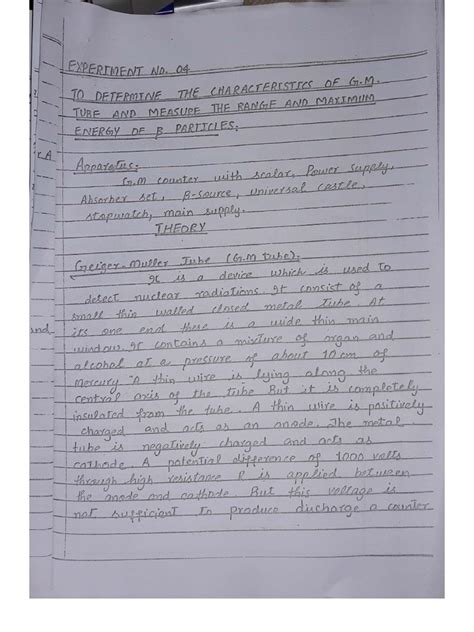 EXPERIMENT NO. 04
TO DETERMINE THE CHARACTERISTICS OF G.M.
TUBE AND MEASURE THE RANGE AND MAXIMUM
ENERGY OF B PARTICLES:
r.A
Apparatus:
G.M counter with scalar, Power supply,
Absorber set, B-source, universal castle,
stopwatch, main supply.
THEORY
Geiger-Muller Tube (G.M tube):
It is a device which is used to
detect nuclear radiations. It consist of a
small thin walled closed metal Tube. At
its one end these is a wide thin main
window. It contains a mixture of organ and
alcohol at a pressure of about 10 cm of
Mercury. A thin wire is lying along the
central axis of the tube But it is completely
insulated from the tube. A thin wire is positively
charged and acts as an anode. The metal
tube is negatively charged and acts as
cathode. A potential difference of 1000 volts
through high resistance R is applied between
the anode and cathode. But this voltage is
not sufficient to produce discharge a counter
and